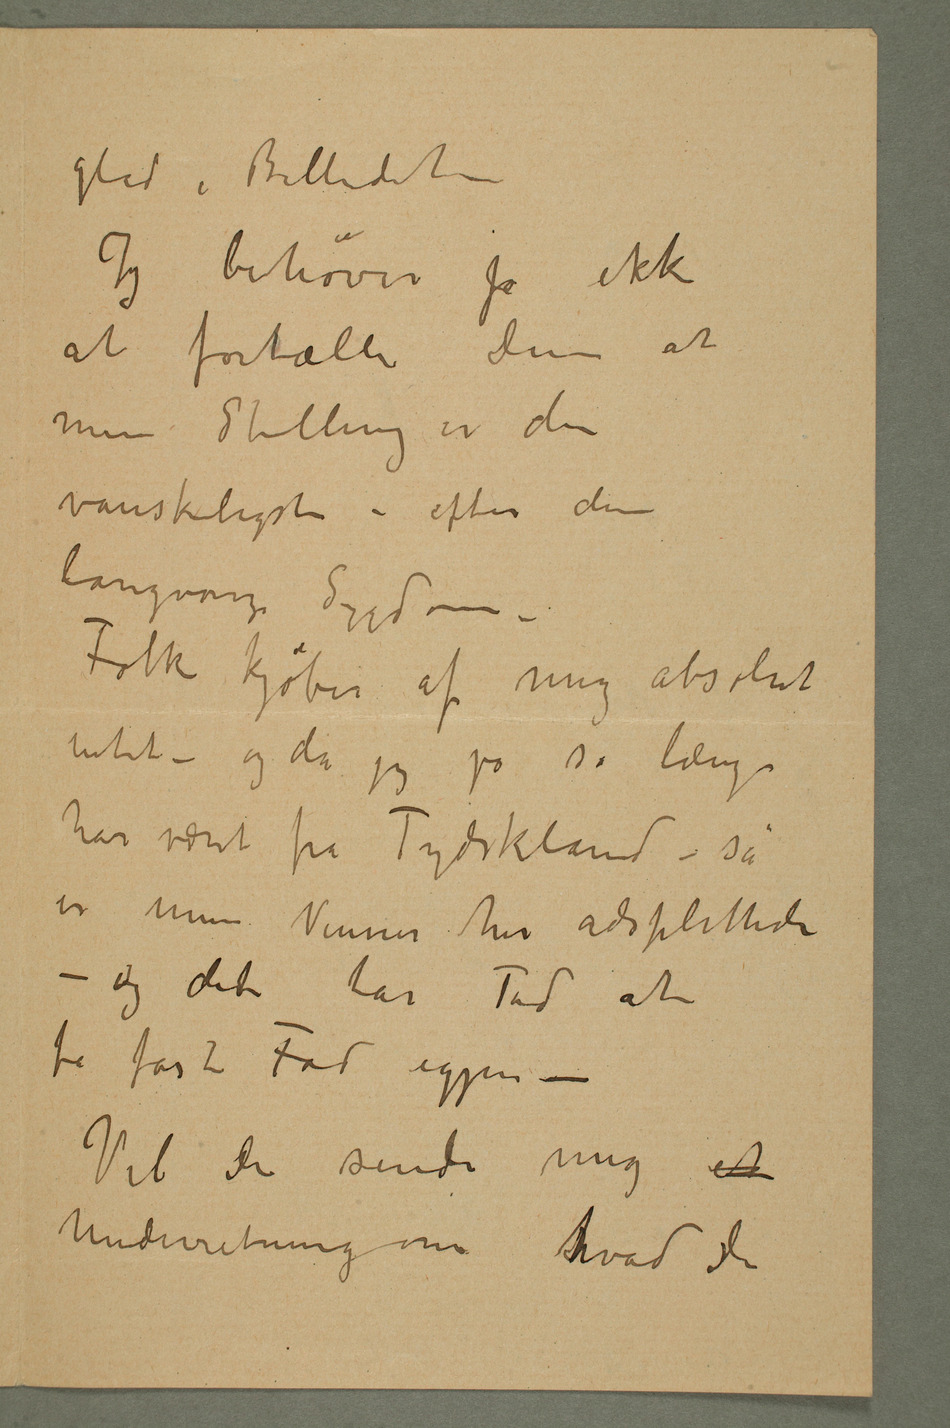 glad i Billedet –
Jeg behøver jo ikke
at fortælle Dem at
min Stilling er den
vanskeligste – efter den
langvarige Sygdom –
Folk kjøber af mig absolut
intet – og da jeg jo så længe
har været fra Tydskland – så
er mine Venner her adsplittede
– og det tar Tid at
få fast Fod igjen –
Vil De sende mig et
Underretning om hvad De